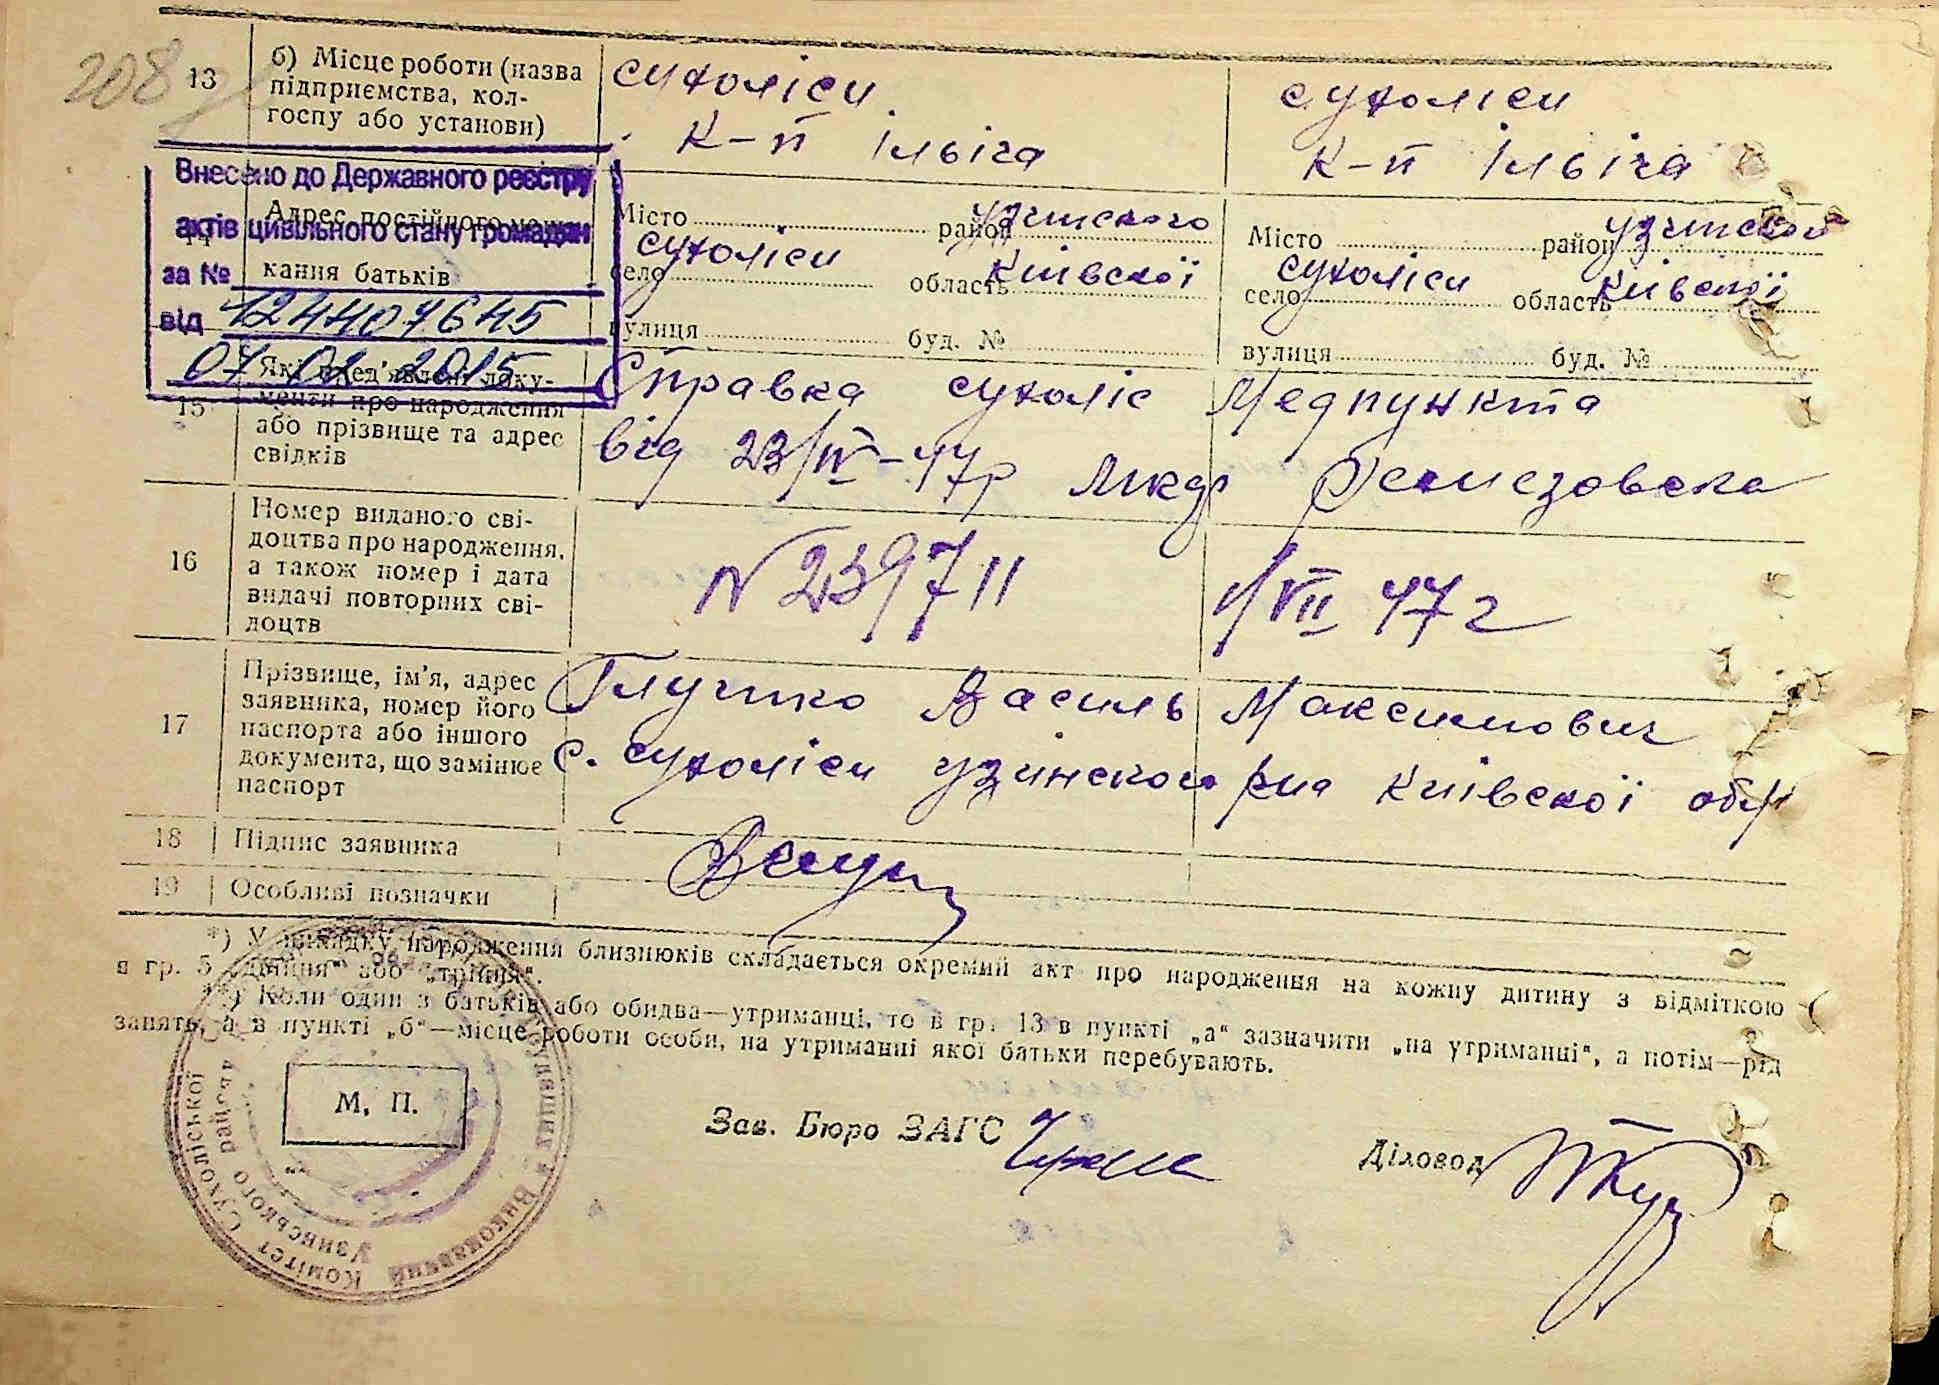 208
13
б) Місце роботи (назва
підприємства, кол-
госпу або установи)
сухоліси
К-п Ілыіча
сухоліси
К-п Ілыіча
Внесено до Державного реєстру
актів цивільного стану громадян
за №
від 12440764 5
07 02 2015
14
Адрес постійного меш-
кання батьків
Місто район узинского
село сухоліси область Київскої
вулиця буд. №
Місто район узинского
село сухоліси область Київскої
вулиця буд. №
15
Які пред'явлені доку-
менти про народження
або прізвище та адрес
свідків
Справка сухоліс Медпункта
від 23/IV-47р
16
Номер виданого сві-
доцтва про народження,
а також номер і дата
видачі повторних сві-
доцтв
N 239711
1/VII 47 г
17
Прізвище, ім'я, адрес
заявника, номер його
паспорта або іншого
документа, що замінює
паспорт
Василь Максимович
с. сухоліси узінского р-на Київскої обл
18 Підпис заявника
19 Особливі позначки
*) У випадку народження близнюків складається окремий акт про народження на кожну дитину з відміткою
в гр. 5 „двійня" або „трійня".
**) Коли один з батьків або обидва—утриманці, то в гр. 13 в пункті „а" зазначити „на утриманці", а потім—рід
занять, а в пункті „б"—місце роботи особи, на утриманні якої батьки перебувають.
М. П.
Зав. Бюро ЗАГС
Діловод
Виконавчий Комітет Сухоліської
Узинського району